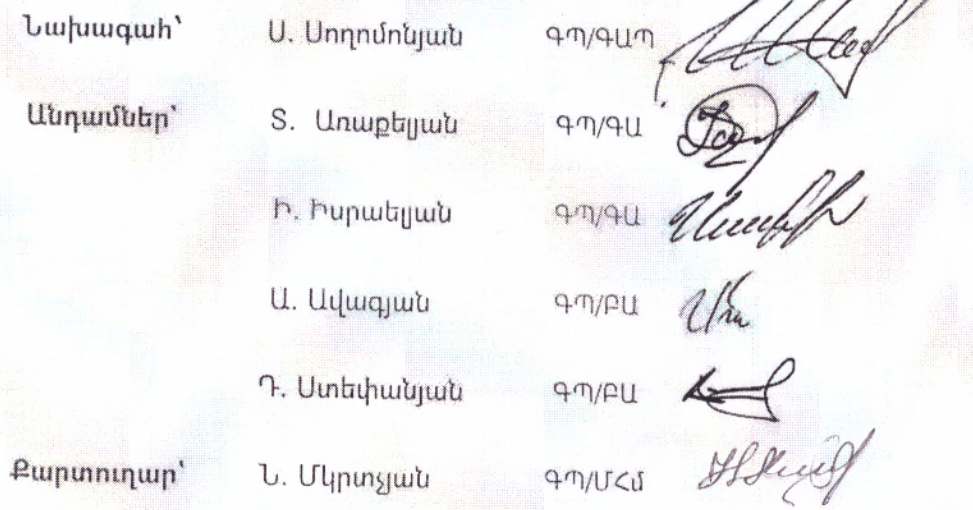 Նախագահ՝ Ս. Սողոմոնյան ԳՊ/ԳԱՊ
Անդամներ՝ Տ. Առաքելյան ԳՊ/ԳԱ
Ի. Իսրաելյան ԳՊ/ԳԱ
Ա. Ավագյան ԳՊ/ԲԱ
Դ. Ստեփանյան ԳՊ/ԲԱ
Քարտուղար՝ Ն. Մկրտչյան ԳՊ/ՄՀմ